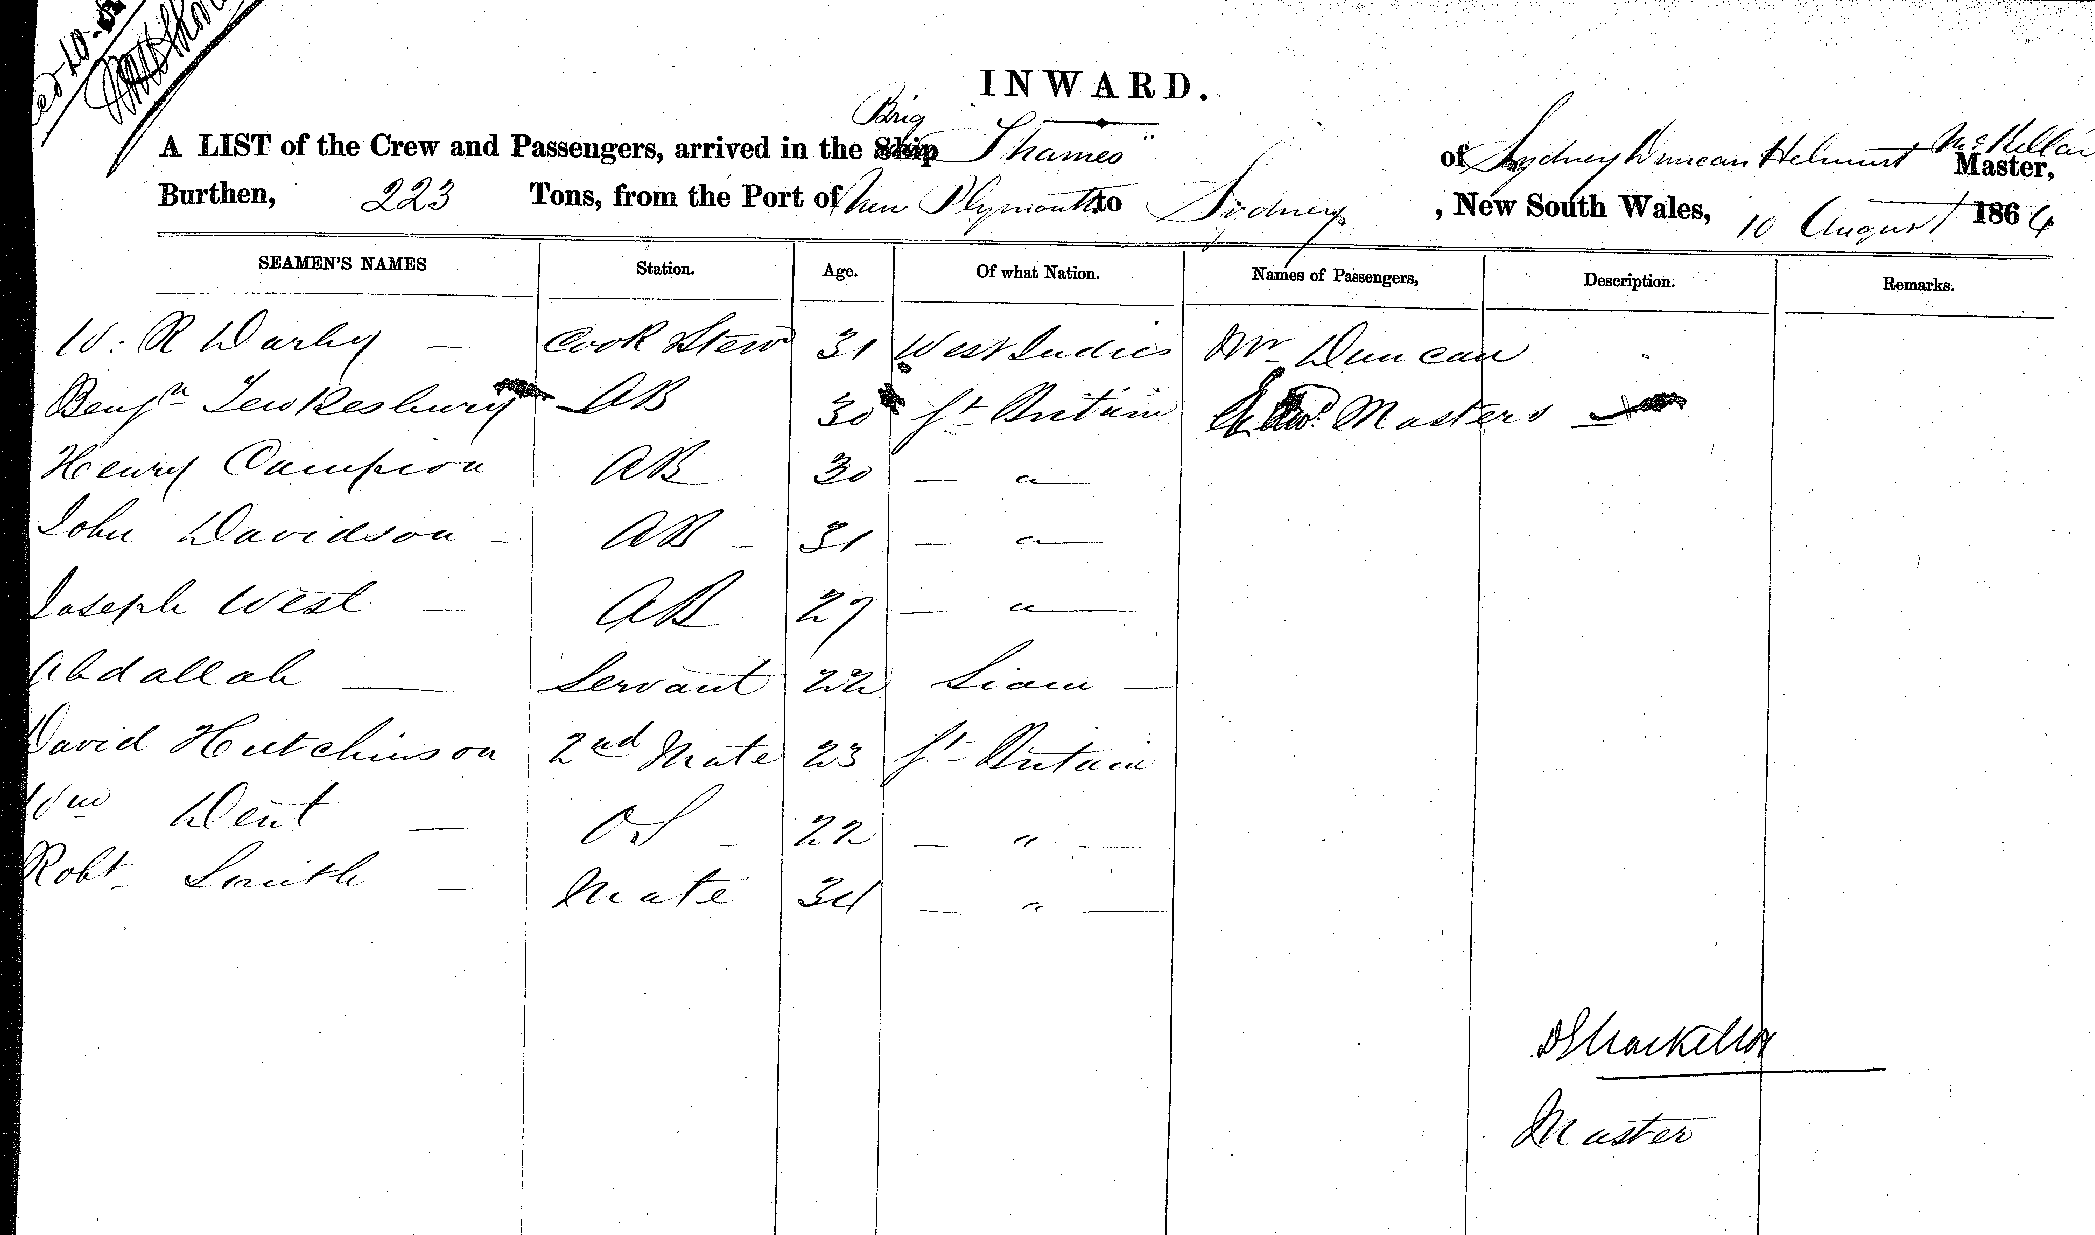 INWARD.
Brig
A LIST of the Crew and Passengers, arrived in the Ship "Thames" of Sydney Duncan McKellar Master,
Burthen, 223 Tons, from the Port of New Plymouth to Sydney, New South Wales, 10 August 1864
SEAMEN'S NAMES Station. Age. Of what Nation. Names of Passengers, Description. Remarks.
W. R Darby — Cook Stewd 31 West Indies Mr Duncan
Benjn Tewkesbury AB 30 Gt Britain Masters
Henry Campion AB 30 — " —
John Davidson - AB - 31 — " —
Joseph West — AB 27 — " —
Abdallah — Servant 22 Siam —
David Hutchinson 2nd Mate 23 Gt Britain
Wm Dent — OS - 22 — " —
Robt Smith — Mate 34 — " —
Master